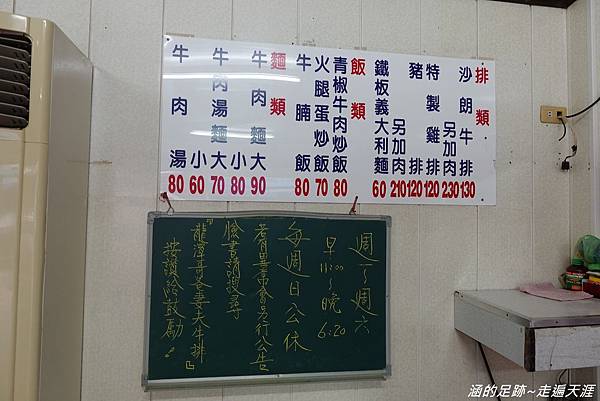 排類
沙朗牛排 130
另加肉 230
特製雞排 120
豬排 120
另加肉 210
鐵板義大利麵 60
飯類
青椒牛肉炒飯 80
火腿蛋炒飯 70
牛腩飯 80
麵類
牛肉麵 大 90
小 80
牛肉湯麵 大 70
小 60
牛肉湯 80
週一~週六
早11:00~晚6:20
每週日公休
若有異常會另行公告
臉書請搜尋
『龍潭哥爸妻夫牛排』
按讚給鼓勵!
涵的足跡~走遍天涯